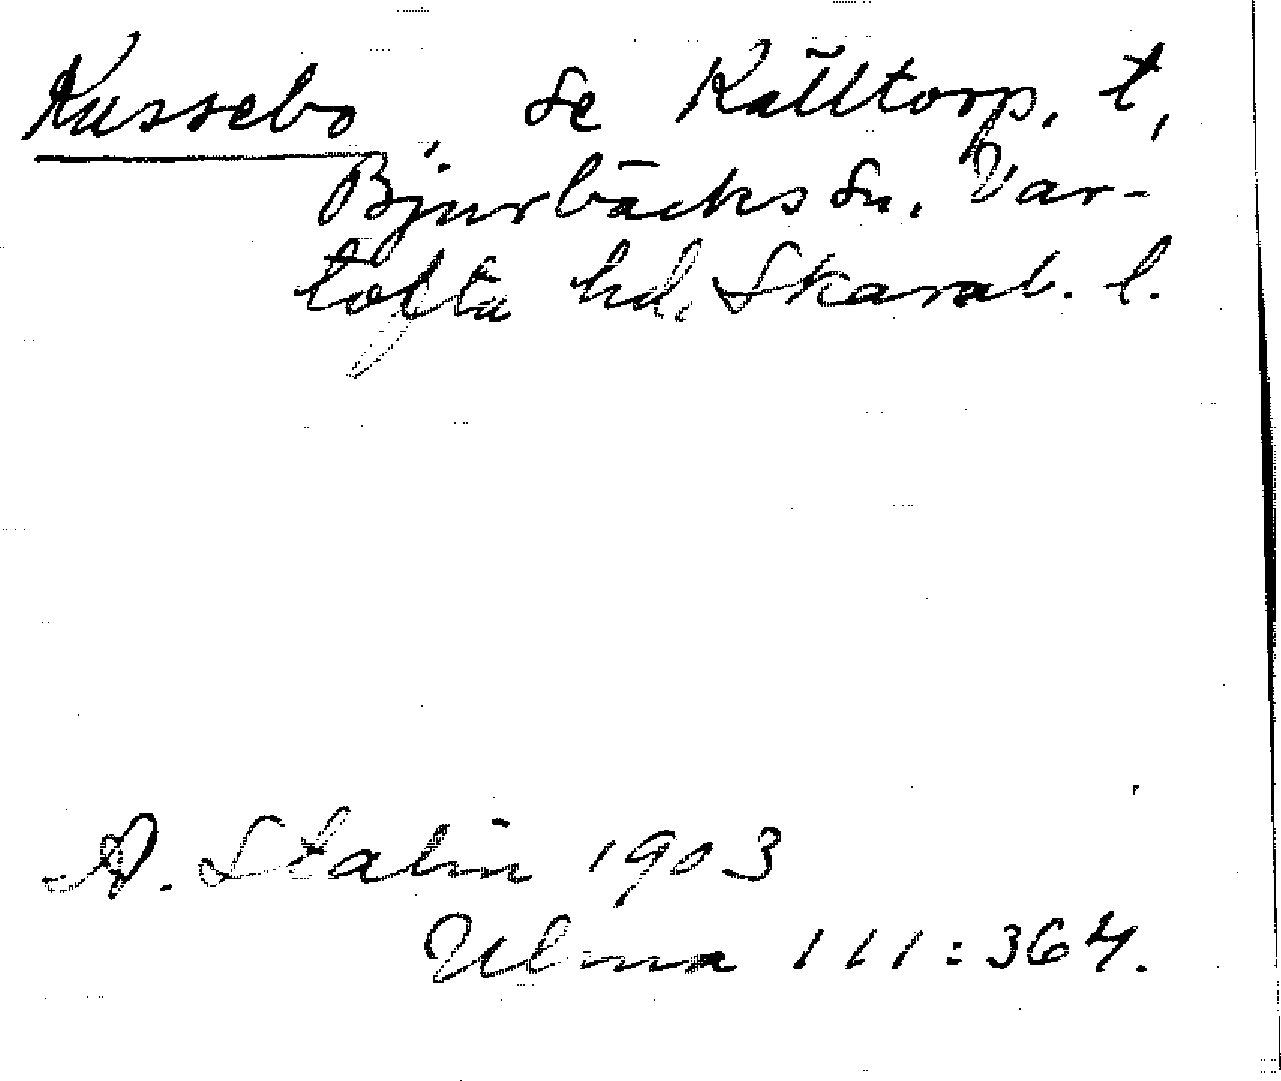 Kussebo, se Källtorp, t,
Bjurbäcks sn. Var-
tofta hd. Skarab. l.
A. Stalin 1903
Ulma 111:364.